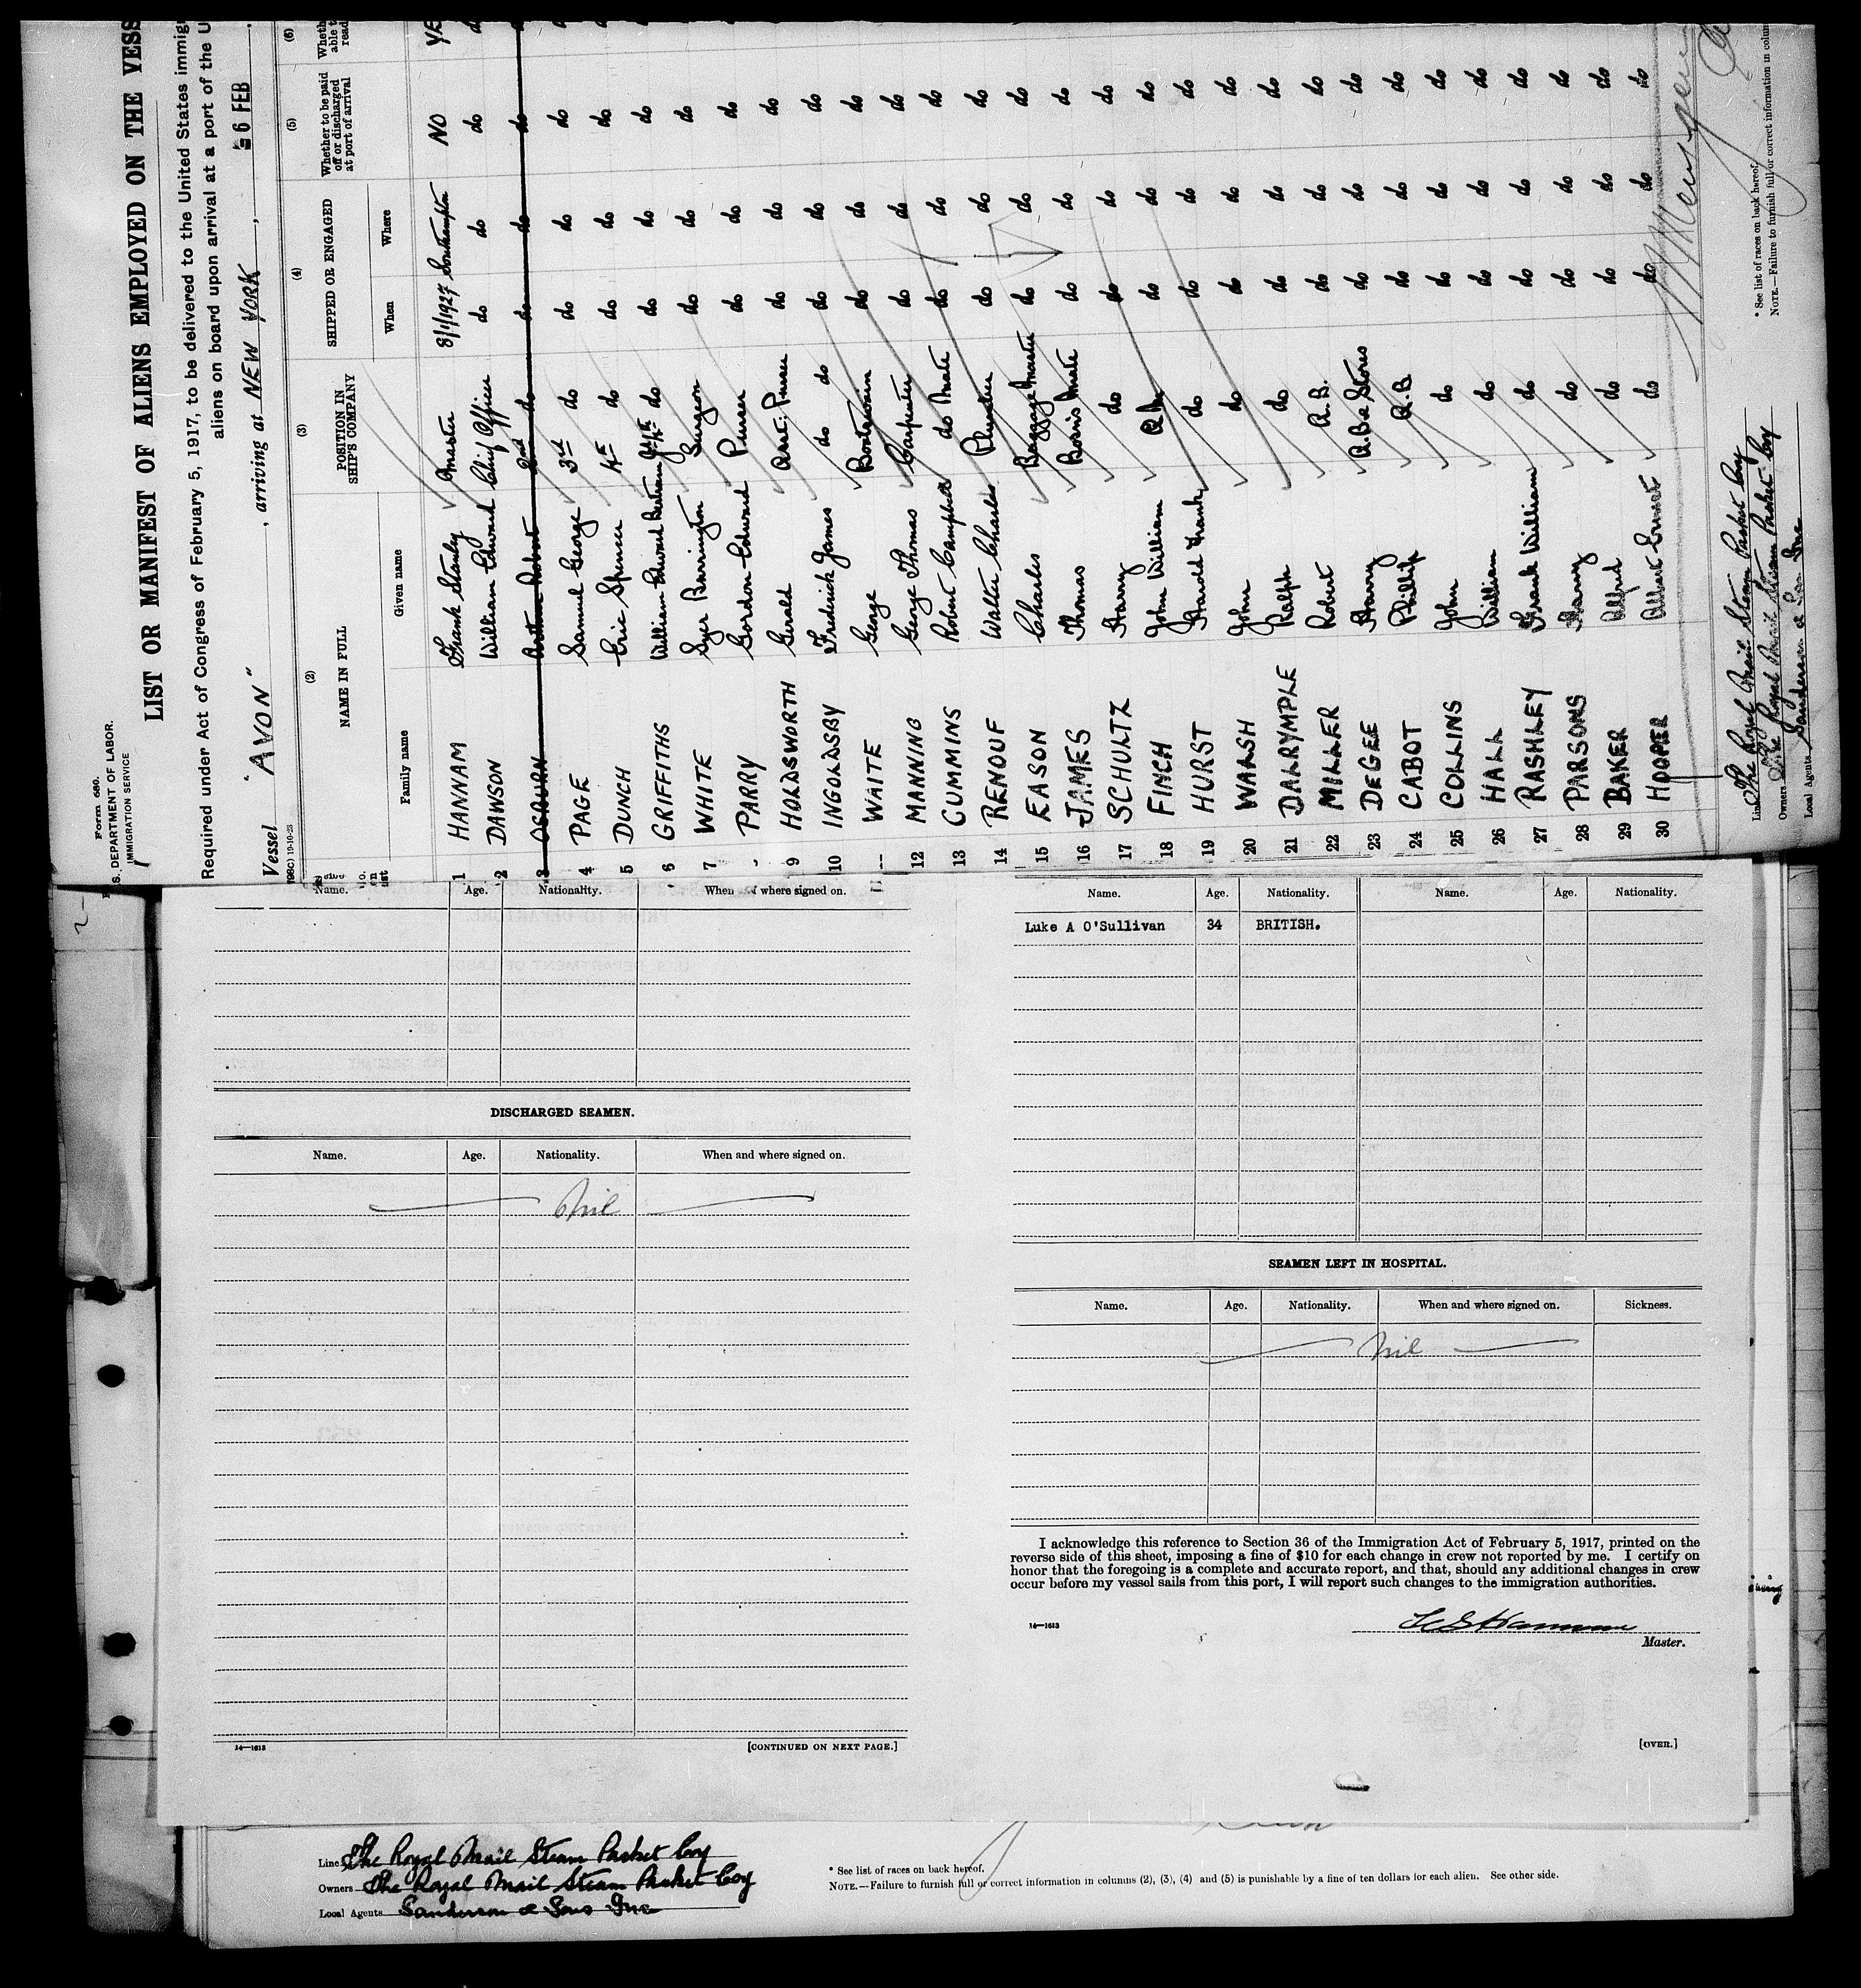 Form 680.
U.S. DEPARTMENT OF LABOR.
IMMIGRATION SERVICE
LIST OR MANIFEST OF ALIENS EMPLOYED ON THE VESS
Required under Act of Congress of February 5, 1917, to be delivered to the United States immig
aliens on board upon arrival at a port of the U
Vessel "AVON", arriving at NEW YORK, 6 FEB
(2) (3) (4) (5) (6)
NAME IN FULL POSITION IN SHIP'S COMPANY SHIPPED OR ENGAGED Whether to be paid off or discharged at port of arrival
Family name Given name When Where
1 HANNAM Frank Stanley Master 8/1/1927 Southampton NO YE
2 DAWSON William Edward Chief Officer do do do do
3 OSBURN Arthur Robert 2nd do do do do
4 PAGE Samuel George 3rd do do do do
5 DUNCH Eric Spencer 4th do do do do
6 GRIFFITHS William Edward Bertram do do do do
7 WHITE Syer Barrington Surgeon do do do
PARRY Gordon Edward Purser do do do
9 HOLDSWORTH Gerald Asst. Purser do do do
10 INGOLDSBY Frederick James do do do do do
WAITE George Boatswain do do do
12 MANNING George Thomas Carpenter do do do
13 CUMMINS Robert Campbell do Mate do do do
14 RENOUF Walter Charles Plumber do do do
15 EASON Charles Baggage Master do do do
16 JAMES Thomas Bosn's Mate do do do
17 SCHULTZ Harry do do do do
18 FINCH John William Q.M. do do do
19 HURST Harold Frank do do do do
20 WALSH John do do do do
21 DALRYMPLE Ralph do do do do
22 MILLER Robert A.B. do do do
23 DEGEE Harry A.B. & Stores do do do
24 CABOT Phillip A.B. do do do
25 COLLINS John do do do do
26 HALL William do do do do
27 RASHLEY Frank William do do do do
28 PARSONS Harry do do do do
29 BAKER Alfred do do do do
30 HOOPER Albert Ernest do do do do
Line The Royal Mail Steam Packet Coy
Owners The Royal Mail Steam Packet Coy
Local Agents Sanderson & Son Inc
* See list of races on back hereof.
NOTE.—Failure to furnish full or correct information in colum
Name. Age. Nationality. When and where signed on.
DISCHARGED SEAMEN.
Name. Age. Nationality. When and where signed on.
Nil
14—1613 [CONTINUED ON NEXT PAGE.]
Name. Age. Nationality. Name. Age. Nationality.
Luke A O'Sullivan 34 BRITISH.
SEAMEN LEFT IN HOSPITAL.
Name. Age. Nationality. When and where signed on. Sickness.
Nil
I acknowledge this reference to Section 36 of the Immigration Act of February 5, 1917, printed on the
reverse side of this sheet, imposing a fine of $10 for each change in crew not reported by me. I certify on
honor that the foregoing is a complete and accurate report, and that, should any additional changes in crew
occur before my vessel sails from this port, I will report such changes to the immigration authorities.
14—1613
F S Hannam
Master.
[OVER.]
Line The Royal Mail Steam Packet Coy
Owners The Royal Mail Steam Packet Coy
Local Agents Sanderson & Sons Inc
* See list of races on back hereof.
NOTE.—Failure to furnish full or correct information in columns (2), (3), (4) and (5) is punishable by a fine of ten dollars for each alien. See other side.